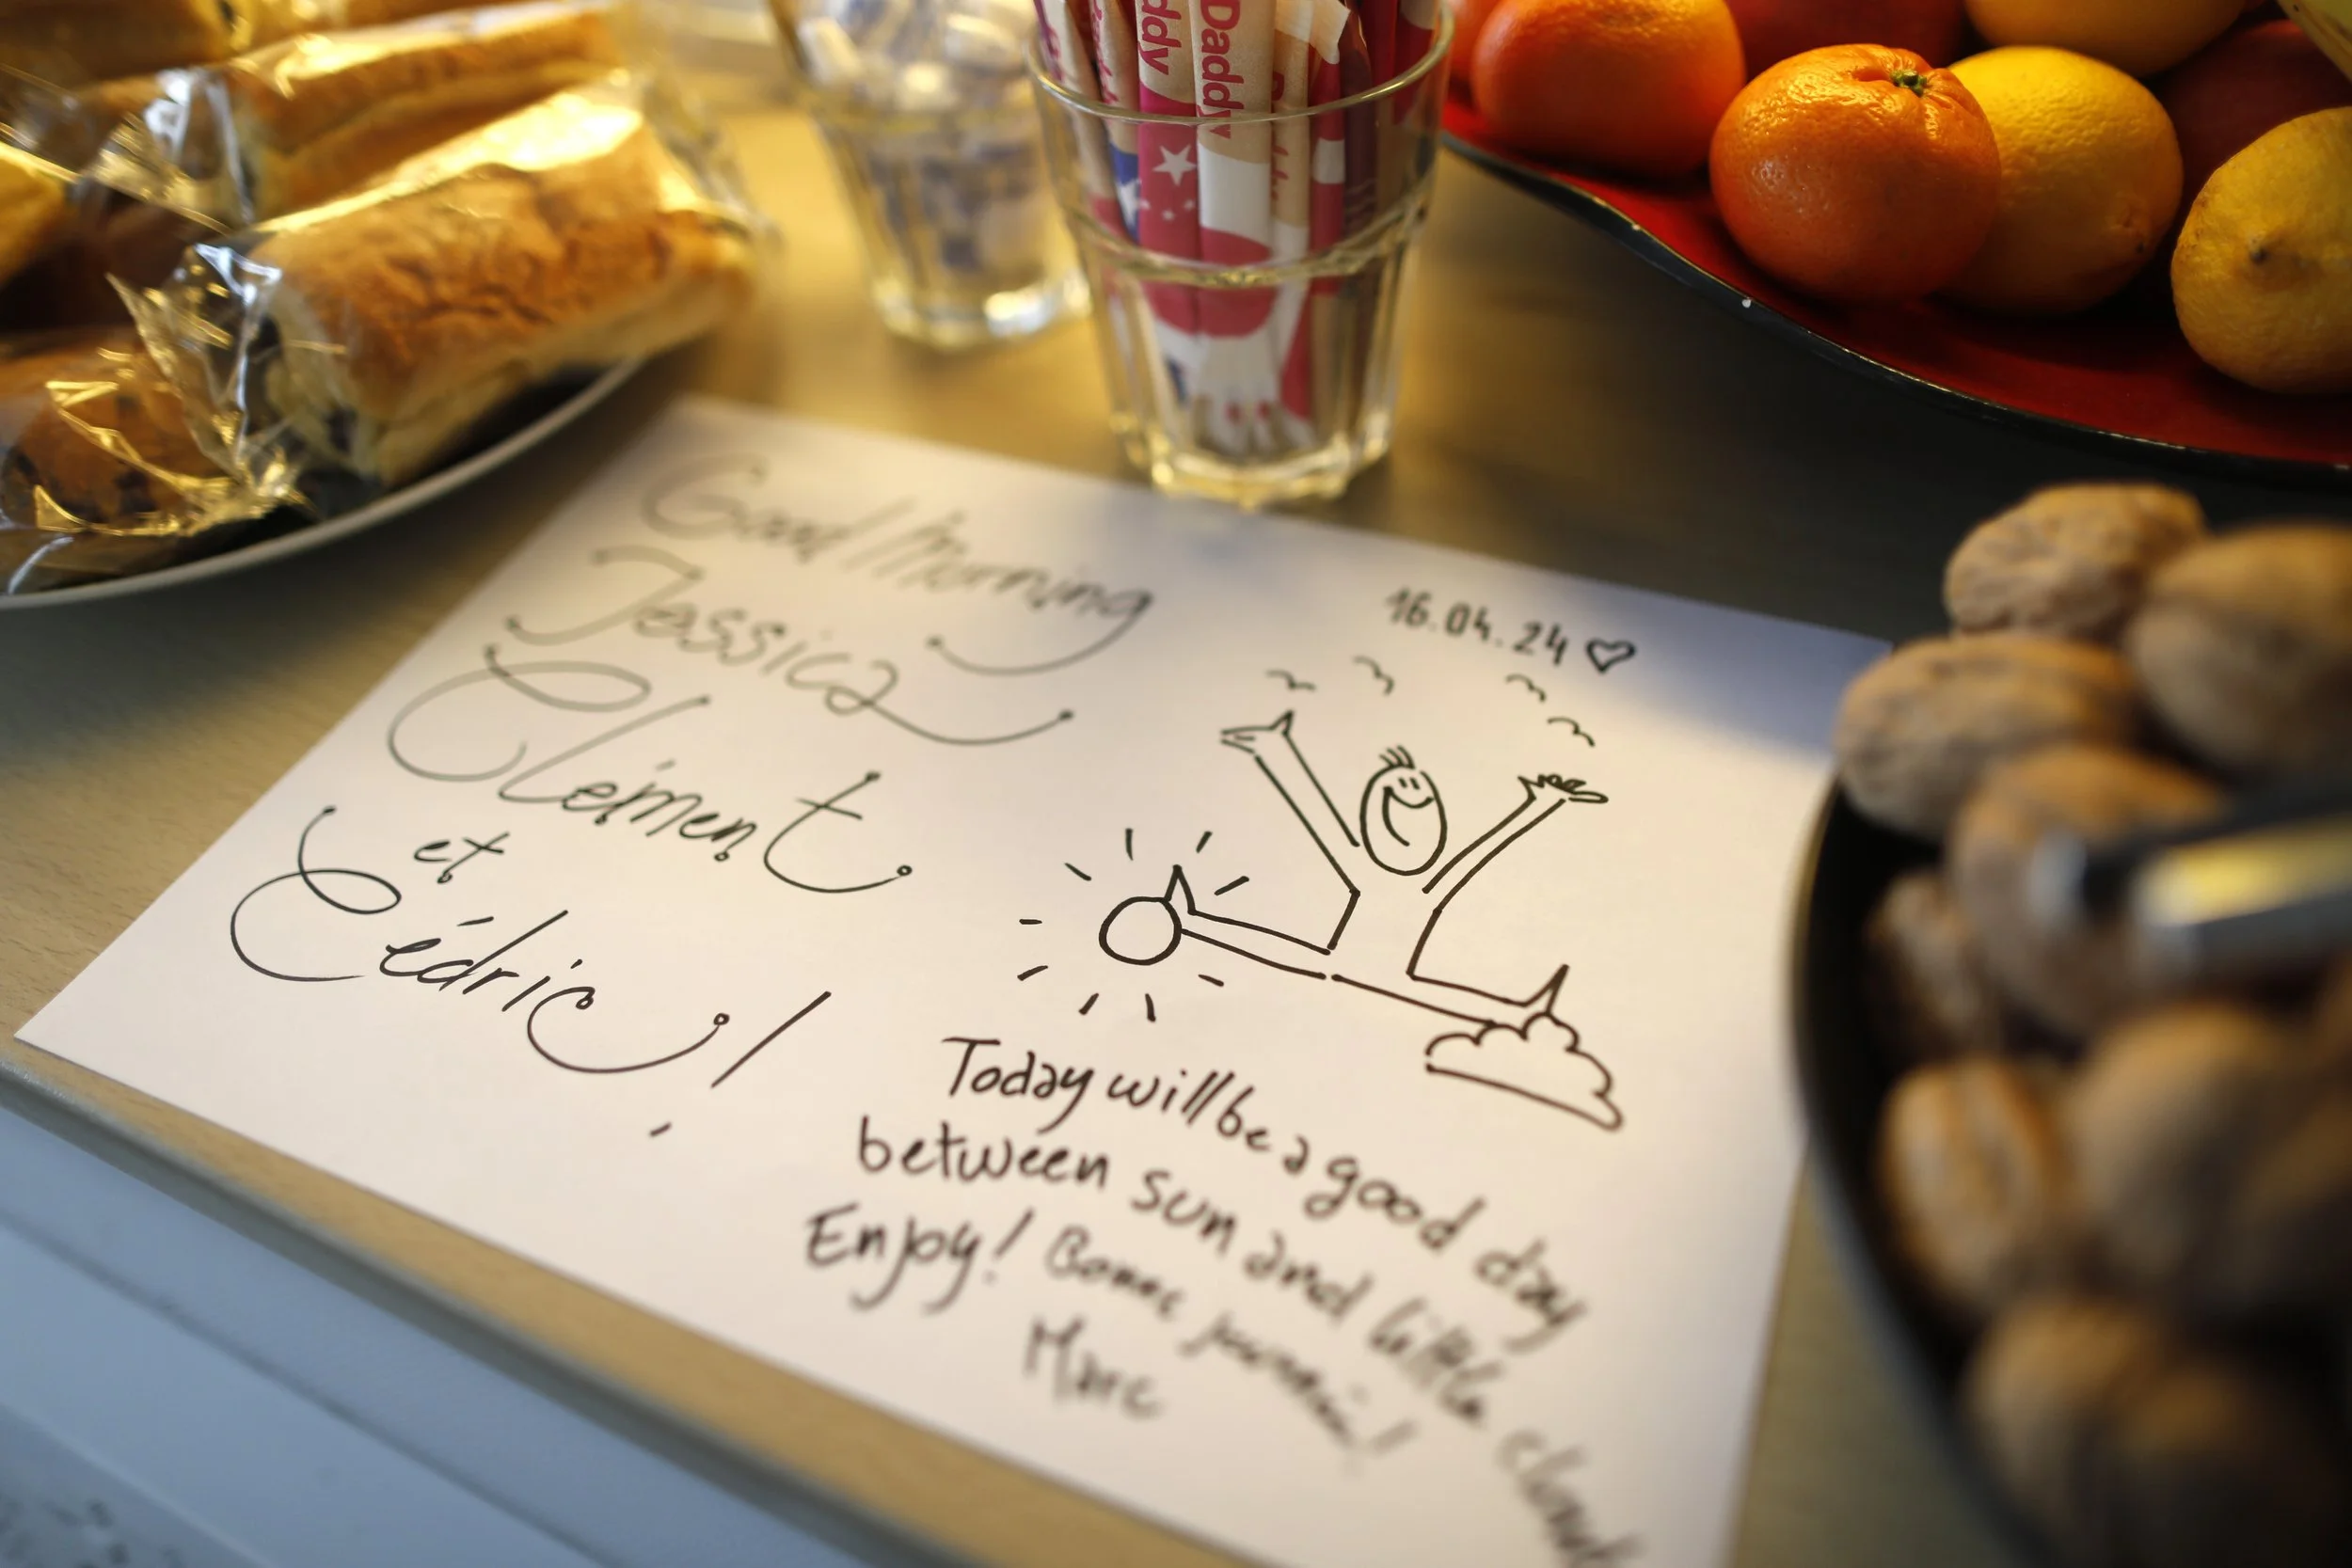 Daddy
Daddy
Good Morning
Jessica
Clément
et
Cédric !
16.04.24
Today will be a good day
between sun and little clouds
Enjoy! Bonne journée!
Marc